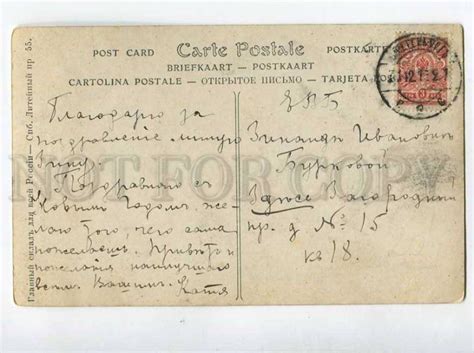 POST CARD Carte Postale POSTKARTE
BRIEFKAART — POSTKAART
CARTOLINA POSTALE — ОТКРЫТОЕ ПИСЬМО — TARJETA PO
Главный складъ для всей Россіи — Спб. Литейный пр. 55.
Благодарю за
поздравленіе милую
Зину.
Поздравляю съ
Новымъ Годомъ, же-
лаю того, чего сама
пожелаешь. Привѣтъ и
пожеланія наилучшаго
всѣмъ Вашимъ. Катя
Зинаидѣ Ивановнѣ
Бурковой
Здѣсь Загородный
пр. д № 15
кв 18.
NOT FOR COPY